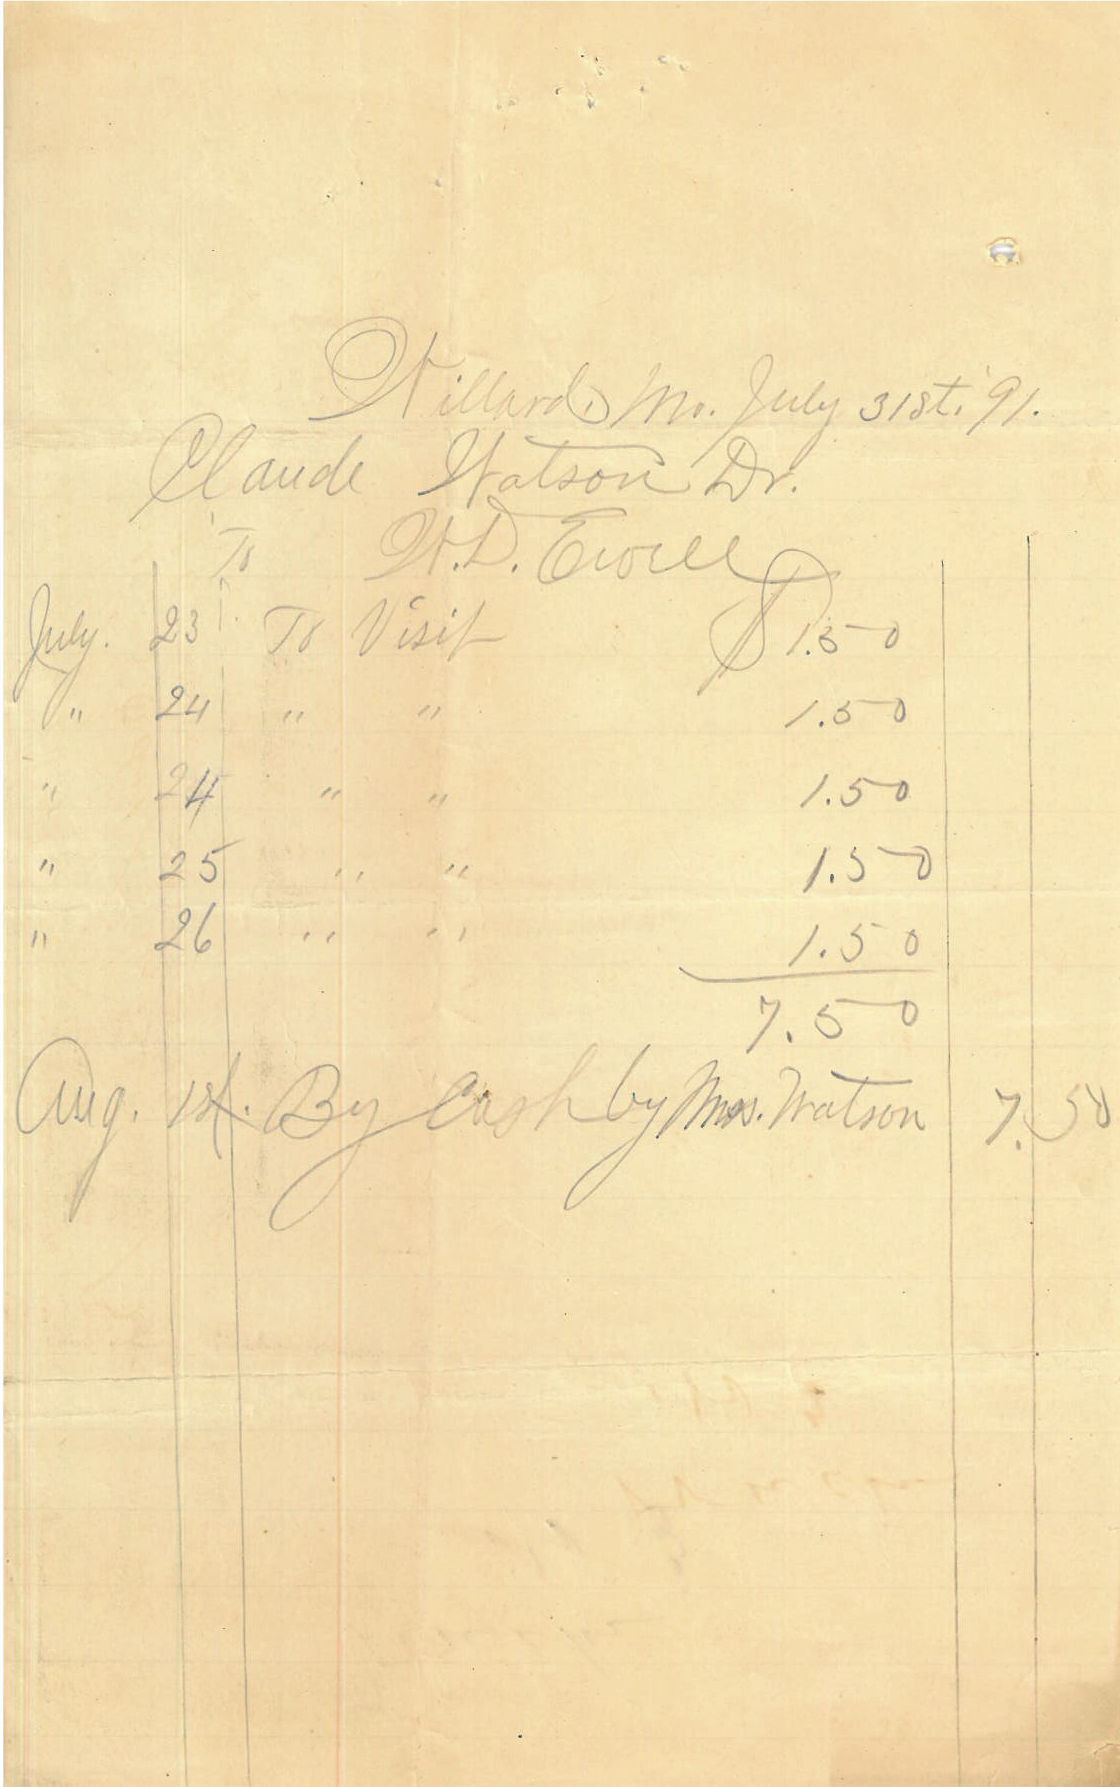 Willard, Mo. July 31st. '91.
Claude Watson Dr.
To W.D. Ewell
July. 23 To Visit $1.50
" 24 " " 1.50
" 24 " " 1.50
" 25 " " 1.50
" 26 " " 1.50
7.50
Aug. 1st. By Cash by Mrs. Watson 7.50